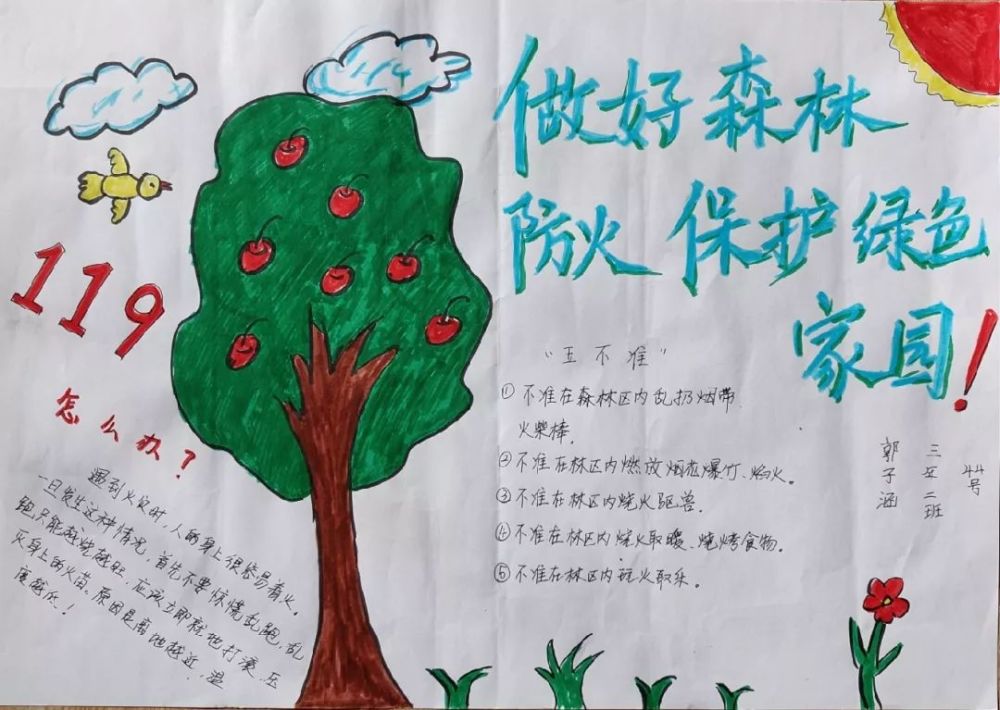 做好森林
防火 保护绿色
家园!
119
怎么办?
遇到火灾时,人的身上很容易着火。
一旦发生这种情况,首先不要惊慌乱跑,乱
跑只能越烧越旺,应该立即就地打滚,压
灭身上的火苗。原因是离地越近,温
度越低!
"五不准"
①不准在森林区内乱扔烟蒂
火柴棒,
②不准在林区内燃放烟花爆竹、焰火。
③不准在林区内烧火驱兽.
④不准在林区内烧火取暖、烧烤食物。
⑤不准在林区内玩火取乐。
44号
三年二班
郭子涵